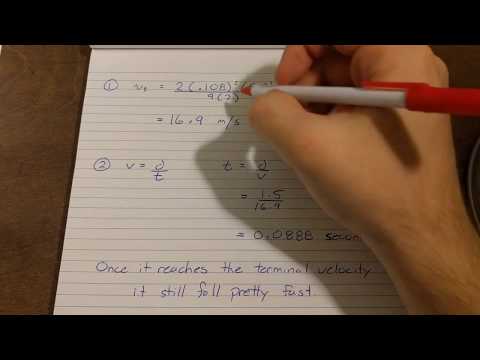 ① v = 2(.108)²
9(2)
= 16.9 m/s
② v = d/t t = d/v
= 1.5/16.9
= 0.0888
Once it reaches the terminal velocity
it still fall pretty fast.